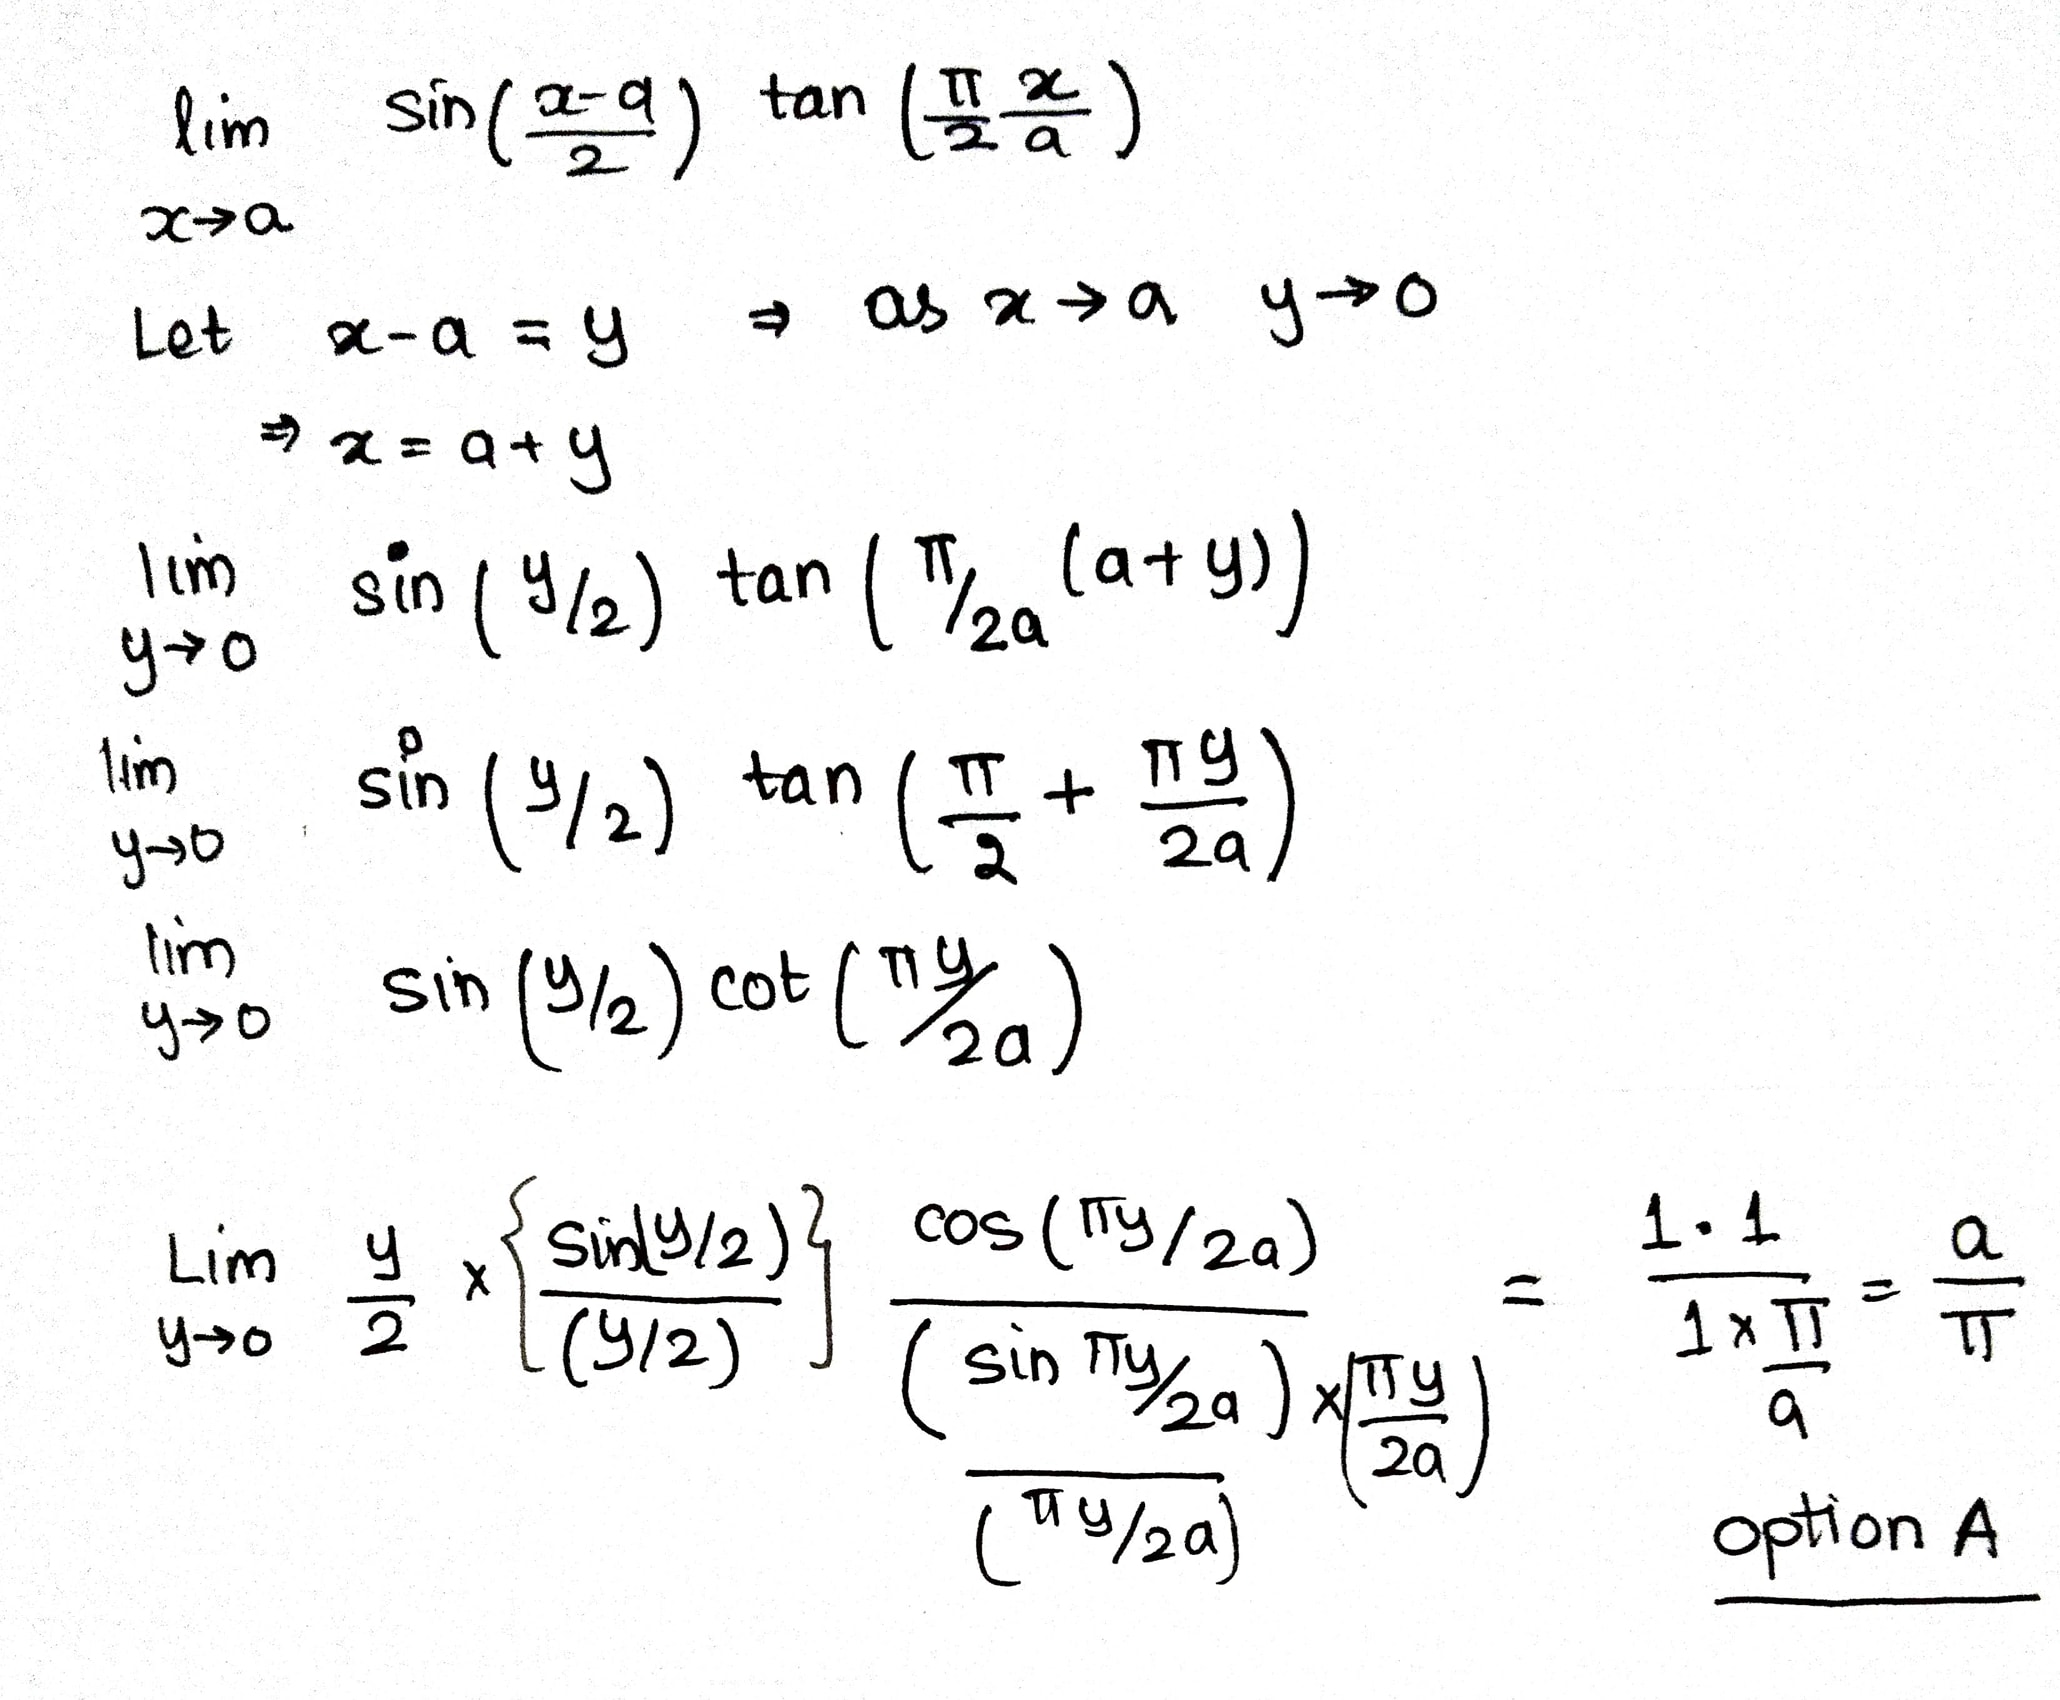 lim sin((x-a)/2) tan(π/2 x/a)
x→a
Let x-a = y ⇒ as x→a y→0
⇒ x = a+y
lim sin(y/2) tan(π/2a (a+y))
y→0
lim sin(y/2) tan(π/2 + πy/2a)
y→0
lim sin(y/2) cot(πy/2a)
y→0
Lim y/2 × {sin(y/2)/(y/2)} cos(πy/2a)/((sin πy/2a)/(πy/2a) × (πy/2a)) = 1·1/(1×π/a) = a/π
y→0
option A